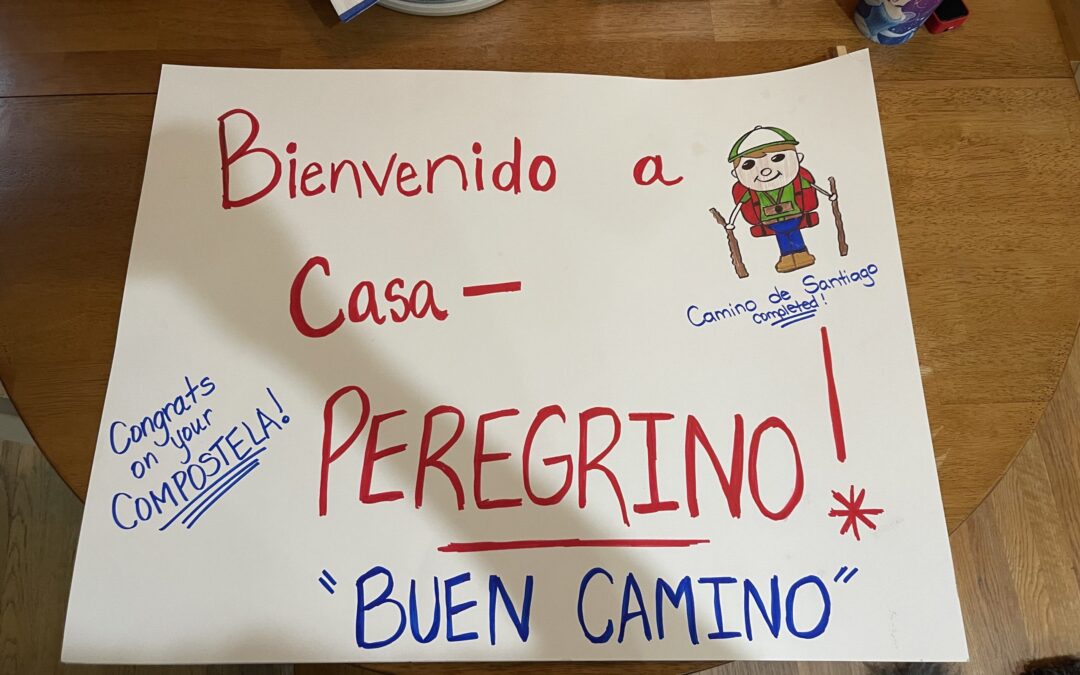 Bienvenido a
Casa —
PEREGRINO!
"BUEN CAMINO"
Camino de Santiago
completed!
Congrats
on your
COMPOSTELA!